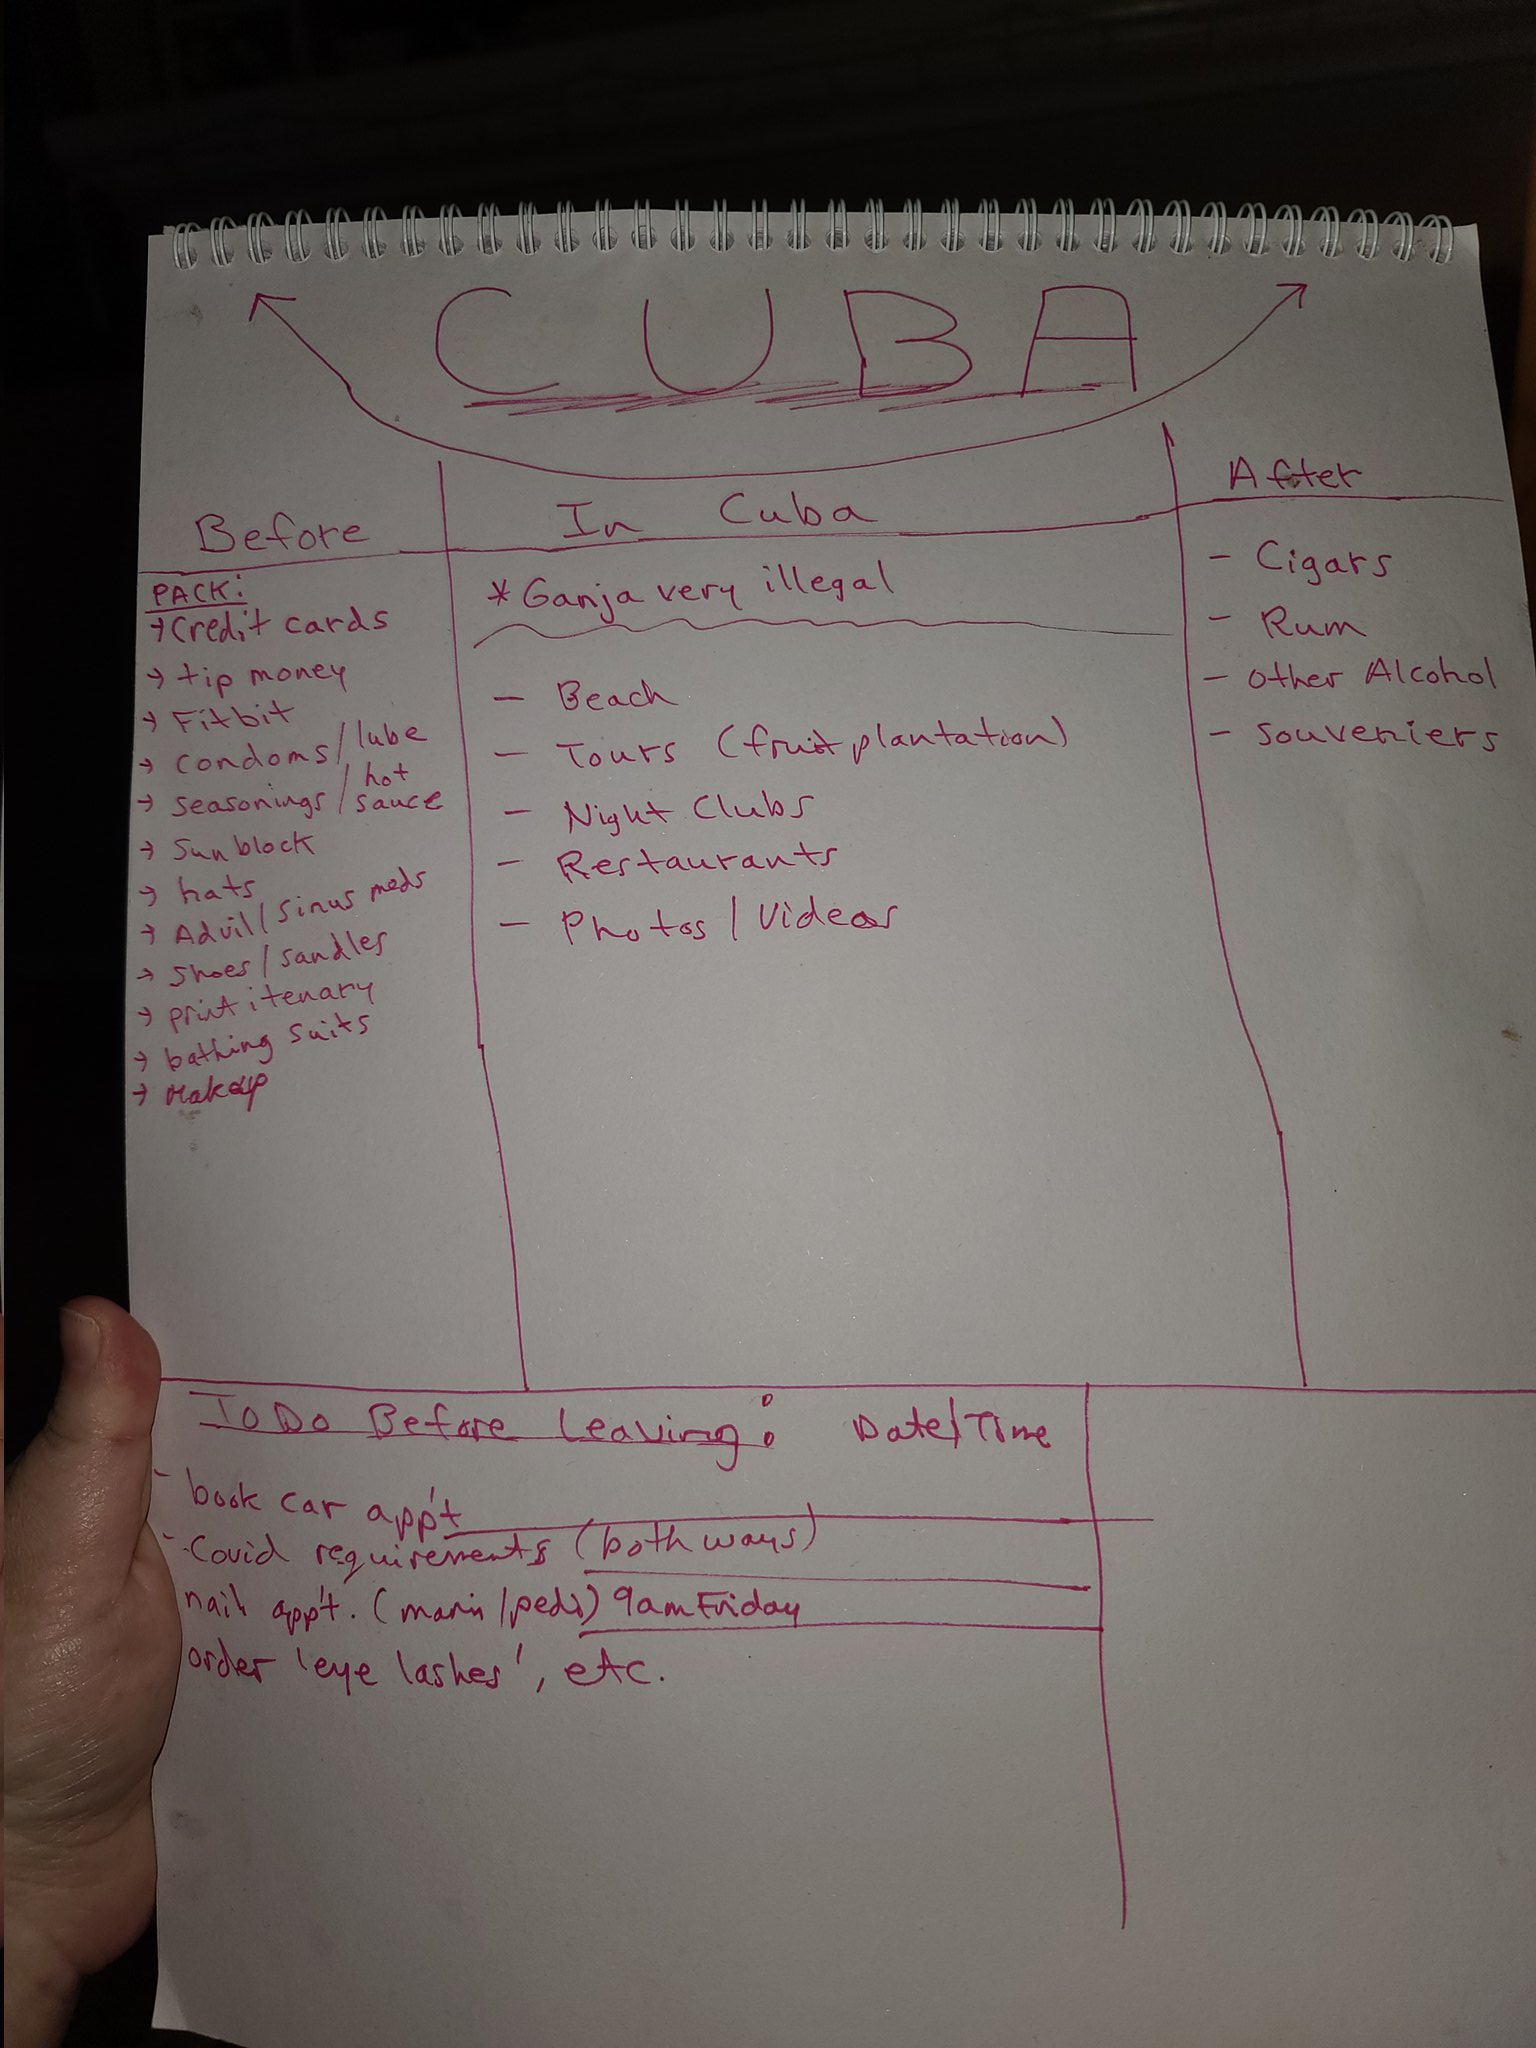 CUBA
Before
PACK:
→ Credit cards
→ tip money
→ Fitbit
→ condoms/lube
→ seasonings/hot sauce
→ Sunblock
→ hats
→ Advil/sinus meds
→ Shoes/sandles
→ print itenary
→ bathing suits
→ Makeup
In Cuba
* Ganja very illegal
- Beach
- Tours (fruit plantation)
- Night Clubs
- Restaurants
- Photos/Videos
After
- Cigars
- Rum
- Other Alcohol
- Souveniers
To Do Before Leaving: Date/Time
- book car app't
- Covid requirements (both ways)
nail app't. (mani/pedi) 9am Friday
order 'eye lashes', etc.